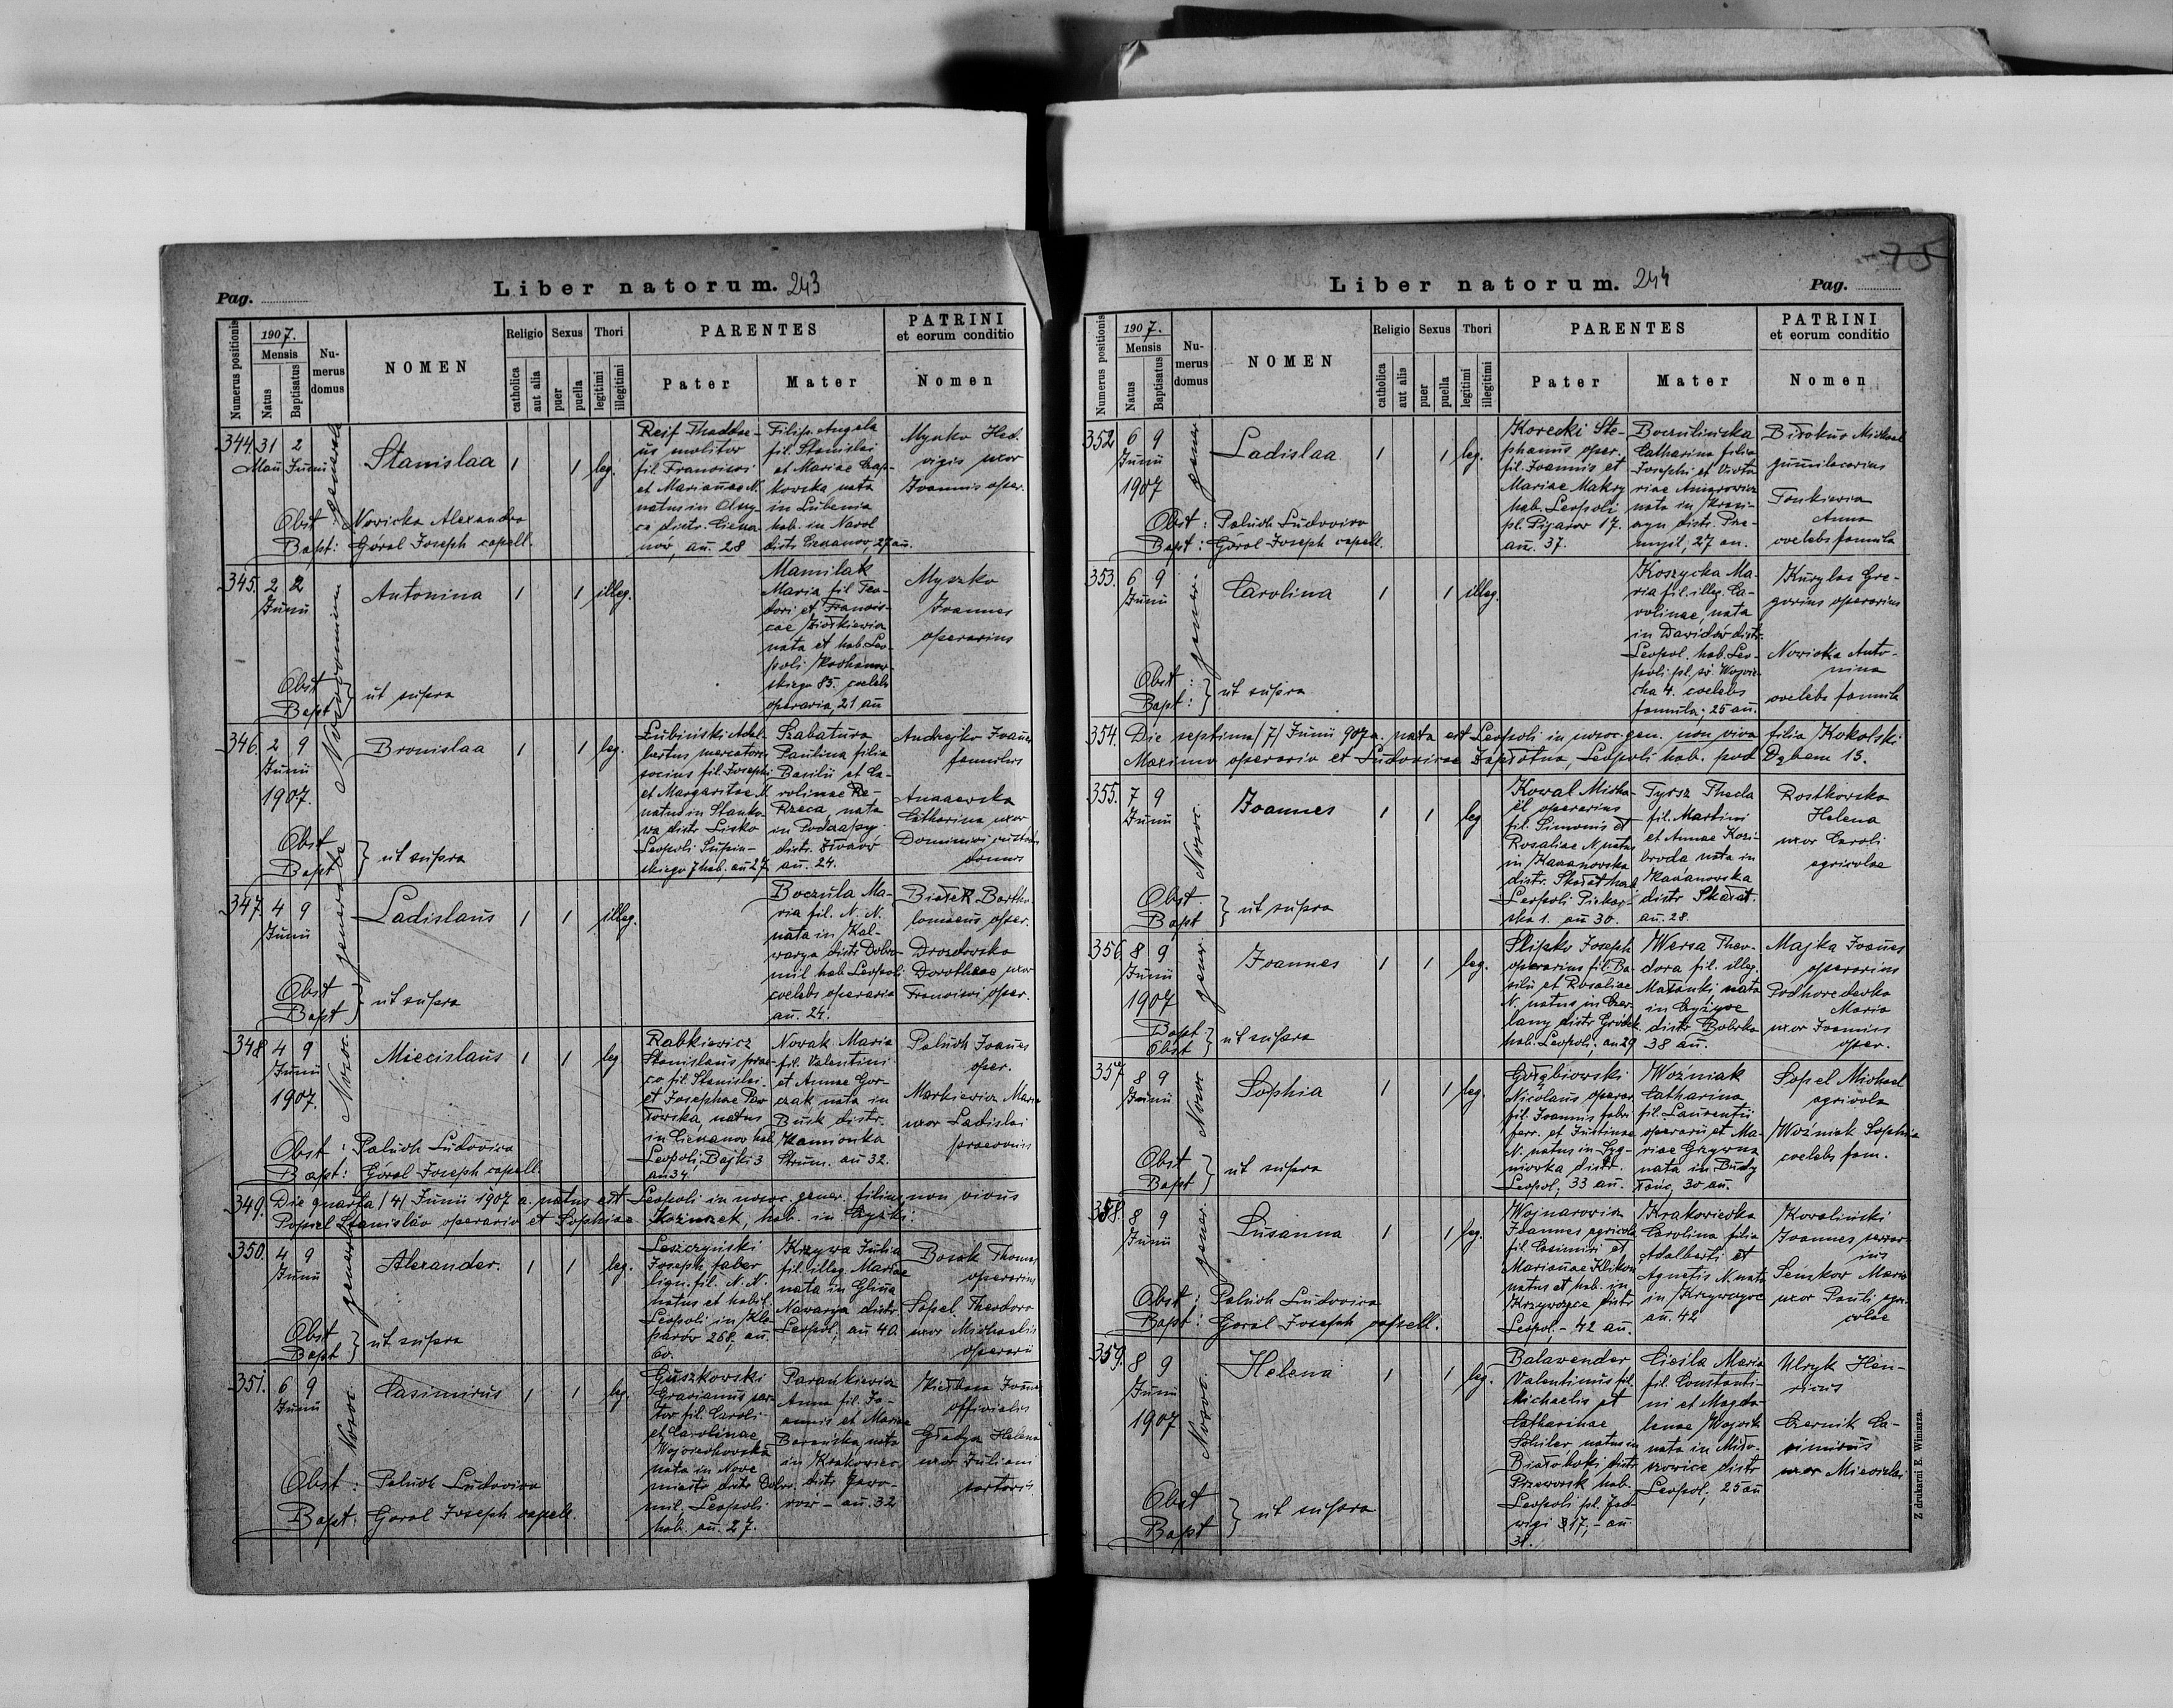 Pag.
Liber natorum. 243
Numerus positionis
1907.
Mensis
Natus
Baptisatus
Numerus domus
NOMEN
Religio
catholica
aut alia
Sexus
puer
puella
Thori
legitimi
illegitimi
PARENTES
Pater
Mater
PATRINI
et eorum conditio
Nomen
Nosocomium generale
344. 31 2
Maii Junii
Stanislaa 1 1 leg.
Reif Thaddae-
us molitor
fil. Francisci
et Mariannae N.
natus in
distr. Ciesza-
nów, an. 28
Filip Angela
fil. Stanislai
et Mariae
nata
in Lubenia
hab. in Narol
distr. Cieszanow, 27 an.
Myszko Hed-
vigis uxor
Joannis oper.
Obst: Nowicka Alexandra
Bapt: Góral Joseph capell.
345. 2 2
Junii
Antonina 1 1 illeg.
Mamilak
Maria fil. Teo-
dori et Francis-
cae
nata et hab. Leo-
poli Kochanow-
skiego 85. coelebs
operaria, 21 an
Myszko
Joannes
operarius
Obst
Bapt } ut supra
346. 2 9
Junii
1907.
Bronislaa 1 1 leg.
Łubiński Adal-
bertus mercatoris
socius fil. Josephi
et Margaritae N
natus in Stanko-
wa distr. Lisko
Leopoli Supiń-
skiego 7 hab. an 27
Szabatura
Paulina filia
Basilii et Ca-
rolinae Re-
Rzeca, nata
in
distr.
an. 24.
Andrejko Joannes
famulus
Catharina uxor
Dominici
Obst
Bapt } ut supra
347. 4 9
Junii
Ladislaus 1 1 illeg.
Boczula Ma-
ria fil. N. N.
nata in Kal-
warya distr. Dobro-
mil hab. Leopoli
coelebs operaria
an. 24.
Białek Bartho-
lomaeus oper.
Drozdowska
Dorotheae uxor
Francisci oper.
Obst
Bapt } ut supra
348 4 9
Junii
1907.
Miecislaus 1 1 leg
Rabkiewicz
Stanislaus prae-
co fil. Stanislai
et Josephae Paw-
łowska, natus
in Cieszanow hab.
Leopoli, Bajki 3
an 34
Novak Maria
fil. Valentini
et Annae Gor-
czak nata in
Busk distr.
Kamionka
Strum. an 32.
Paluch Joannes
oper.
Markiewicz Maria
uxor Ladislai
praeconis
Obst: Paluch Ludovica
Bapt: Góral Joseph capell.
349. Die quarta /4/ Junii 1907 a. natus est Leopoli in nosoc. gener. filius non vivus
Popiel Stanislao operario et Sophiae hab. in
350. 4 9
Junii
Alexander. 1 1 leg.
Leszczyński
Joseph faber
lign. fil. N. N.
natus et habit.
Leopoli in Kle-
parów 268, an.
60.
Krzywa Julia
fil. illeg. Mariae
nata in Glina
Nawarya distr.
Leopol., an 40.
Bosak Thomas
operarius
Sopel Theodora
uxor Michaelis
operarii
Obst
Bapt } ut supra
351. 6 9
Junii
Casimirus 1 1 leg.
Guszkowski
sar-
tor fil. Caroli
et Carolinae
Wojciechowska
nata in Nove
miasto distr. Dobro-
mil, Leopoli
hab. an. 27.
Parankiewicz
Anna fil. Jo-
annis et Mariae
Barańska, nata
in Krakowiec
distr. Jawo-
rów – an. 32
Kiełbasa Joannes
officialis
Helena
uxor Juliani
sartoris
Obst: Paluch Ludovica
Bapt: Goral Joseph capell.
75
Liber natorum. 244
Pag.
Numerus positionis
1907.
Mensis
Natus
Baptisatus
Numerus domus
NOMEN
Religio
catholica
aut alia
Sexus
puer
puella
Thori
legitimi
illegitimi
PARENTES
Pater
Mater
PATRINI
et eorum conditio
Nomen
352 6 9
Junii
1907
Ladislaa 1 1 leg.
Korecki Ste-
phanus oper.
fil. Joannis et
Mariae Makry
hab. Leopoli
pl. Pijarów 17.
an. 37.
Boczulińska
Catharina filia
Josephi et Victo-
riae
nata in Krasi-
czyn distr. Prze-
myśl, 27 an.
Michael
Tonkiewicz
Anna
coelebs famula
Obst: Paluch Ludovica
Bapt: Góral Joseph capell.
353. 6 9
Junii
Carolina 1 1 illeg.
Koszycka Ma-
ria fil. illeg. Ca-
rolinae, nata
in Dawidów distr.
Leopol. hab. Leo-
poli pl. św. Wojcie-
cha 4. coelebs
famula; 25 an.
Kurylas Gre-
gorius operarius
Nowicka Anto-
nina
coelebs famula
Obst:
Bapt: } ut supra
354. Die septima /7/ Junii 907 a. nata est Leopoli in nosoc. gen. non viva filia Kokolski
Maximo operario et Ludovicae Leopoli hab. pod Dębem 13.
355. 7 9
Junii
Joannes 1 1 leg
Kowal Micha-
el operarius
fil. Simonis et
Rosaliae N natus
in Kaczanowska
distr. Skałat hab.
Leopoli Piekar-
ska 1. an 30.
Tyrsz Thecla
fil. Martini
et Annae Kozi-
broda, nata in
Kaczanowska
distr. Skałat.
an. 28.
Rostkowska
Helena
uxor Caroli
agricolae
Obst.
Bapt } ut supra
356 8 9
Junii
1907
Joannes 1 1 leg.
Slipko Joseph
operarius fil. Ba-
silii et Rosaliae
N. natus in Czer-
lany distr. Gródek
hab. Leopoli; an 29
Wersa Theo-
dora fil. illeg.
nata
in
distr. Bobrka
38 an.
Majka Joannes
operarius
Podhorodecka
Maria
uxor Joannis
oper.
Bapt.
Obst } ut supra
357 8 9
Junii
Sophia 1 1 leg.
Gołębiowski
Nicolaus operar.
fil. Joannis fabri
ferr. et Justinae
N. natus in Syg-
niówka distr.
Leopol; 33 an.
Woźniak
Catharina
fil. Laurentii
operarii et Ma-
riae Grzywna
nata in Budy
łańc, 30 an.
Sopel Michael
agricola
Woźniak Sophia
coelebs fam.
Obst
Bapt } ut supra
358. 8 9
Junii
Susanna 1 1 leg.
Wojnarowicz
Joannes agricola
fil. Casimiri et
Mariannae Klikow
natus et hab. in
Krzywczyce distr.
Leopol. – 42 an.
Krakowiecka
Carolina filia
Adalberti et
Agnetis N. nata
in Krzywczyce
an. 42
Kovaliński
Joannes
Senkow Maria
uxor Pauli agri-
colae
Obst: Paluch Ludovica
Bapt: Goral Joseph capell.
359. 8 9
Junii
1907
Helena 1 1 leg.
Balawender
Valentinus fil.
Michaelis et
Catharinae
Schiler natus in
Białoboki distr.
Przeworsk hab.
Leopoli pl. Jad-
wigi 17, – an.
31.
Cieśla Maria
fil. Constanti-
ni et Magda-
lenae Wojcik
nata in Miło-
szowice distr
Leopol; 25 an
Ulryk Hen-
ricus
Czernik Ca-
simirus
uxor Miecislai
Obst
Bapt } ut supra
Z drukarni E. Winiarza.